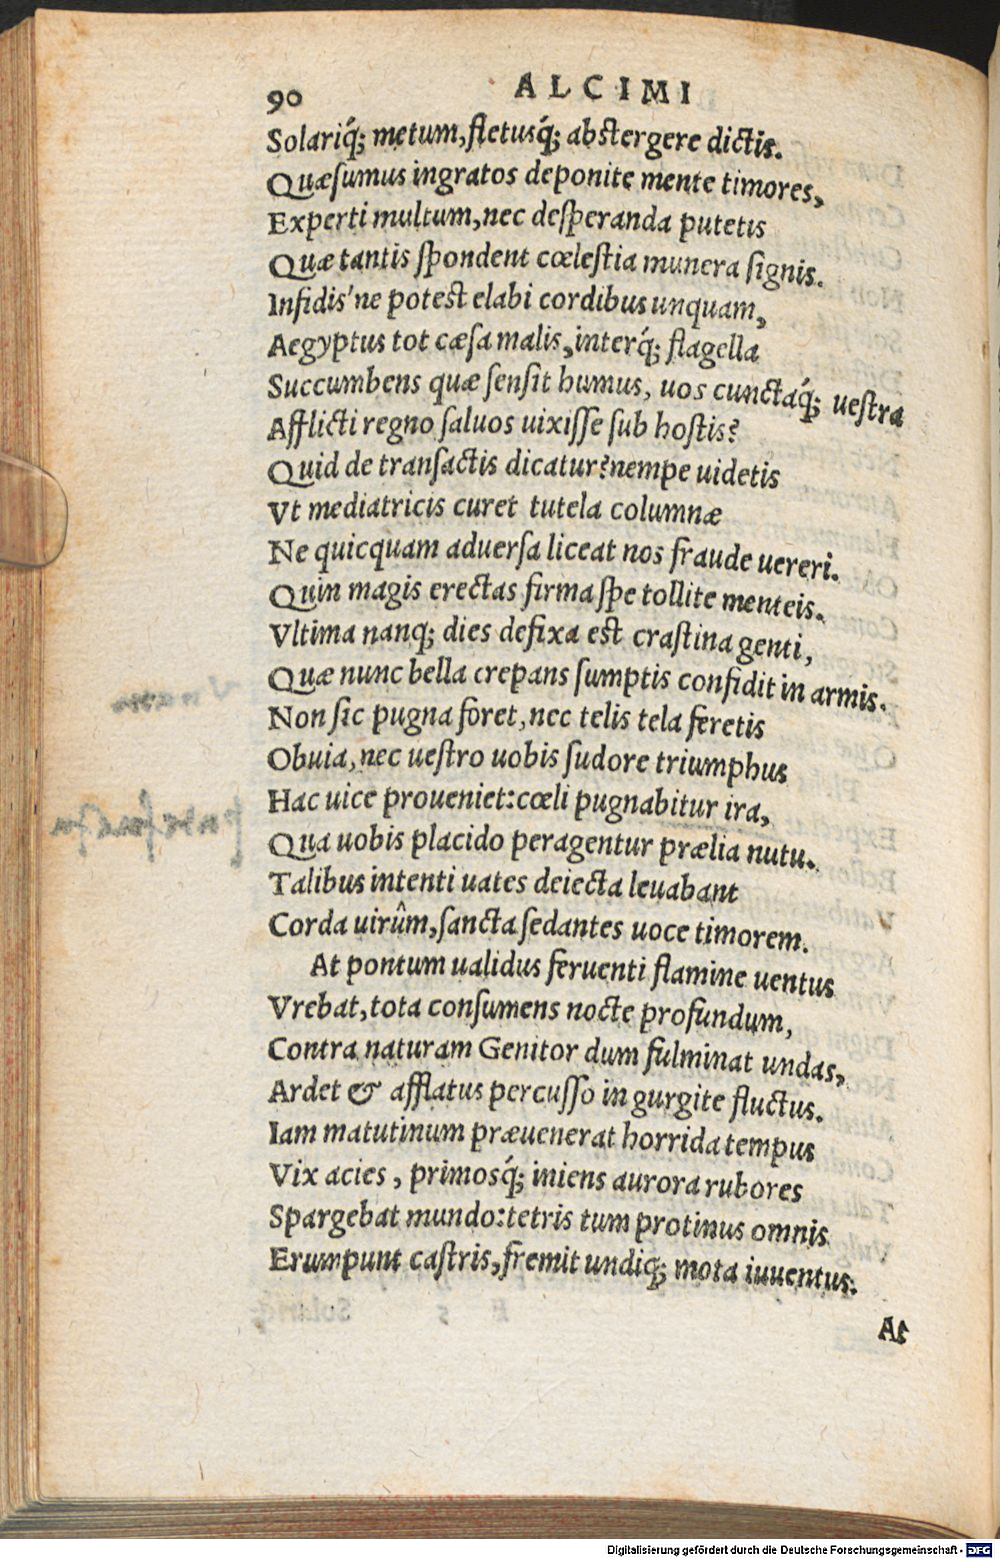 90 ALCIMI
Solariq́; metum, fletusq́; abstergere dictis.
Quæsumus ingratos deponite mente timores,
Experti multum, nec desperanda putetis
Quæ tantis spondent cœlestia munera signis.
Infidis'ne potest elabi cordibus unquam,
Aegyptus tot cæsa malis, interq́; flagella
Succumbens quæ sensit humus, uos cunctaq́; uestra
Afflicti regno saluos uixisse sub hostis?
Quid de transactis dicatur? nempe uidetis
Vt mediatricis curet tutela columnæ
Ne quicquam aduersa liceat nos fraude uereri.
Quin magis erectas firma spe tollite menteis.
Vltima nanq; dies defixa est crastina genti,
Quæ nunc bella crepans sumptis confidit in armis.
Non sic pugna foret, nec telis tela feretis
Obuia, nec uestro uobis sudore triumphus
Hac uice proueniet: cœli pugnabitur ira,
Qua uobis placido peragentur prælia nutu.
Talibus intenti uates deiecta leuabant
Corda uirûm, sancta sedantes uoce timorem.
At pontum ualidus feruenti flamine uentus
Vrebat, tota consumens nocte profundum,
Contra naturam Genitor dum fulminat undas,
Ardet & afflatus percusso in gurgite fluctus.
Iam matutinum præuenerat horrida tempus
Vix acies, primosq́; iniens aurora rubores
Spargebat mundo: tetris tum protinus omnis
Erumpunt castris, fremit undiq; mota iuuentus.
Digitalisierung gefördert durch die Deutsche Forschungsgemeinschaft - DFG